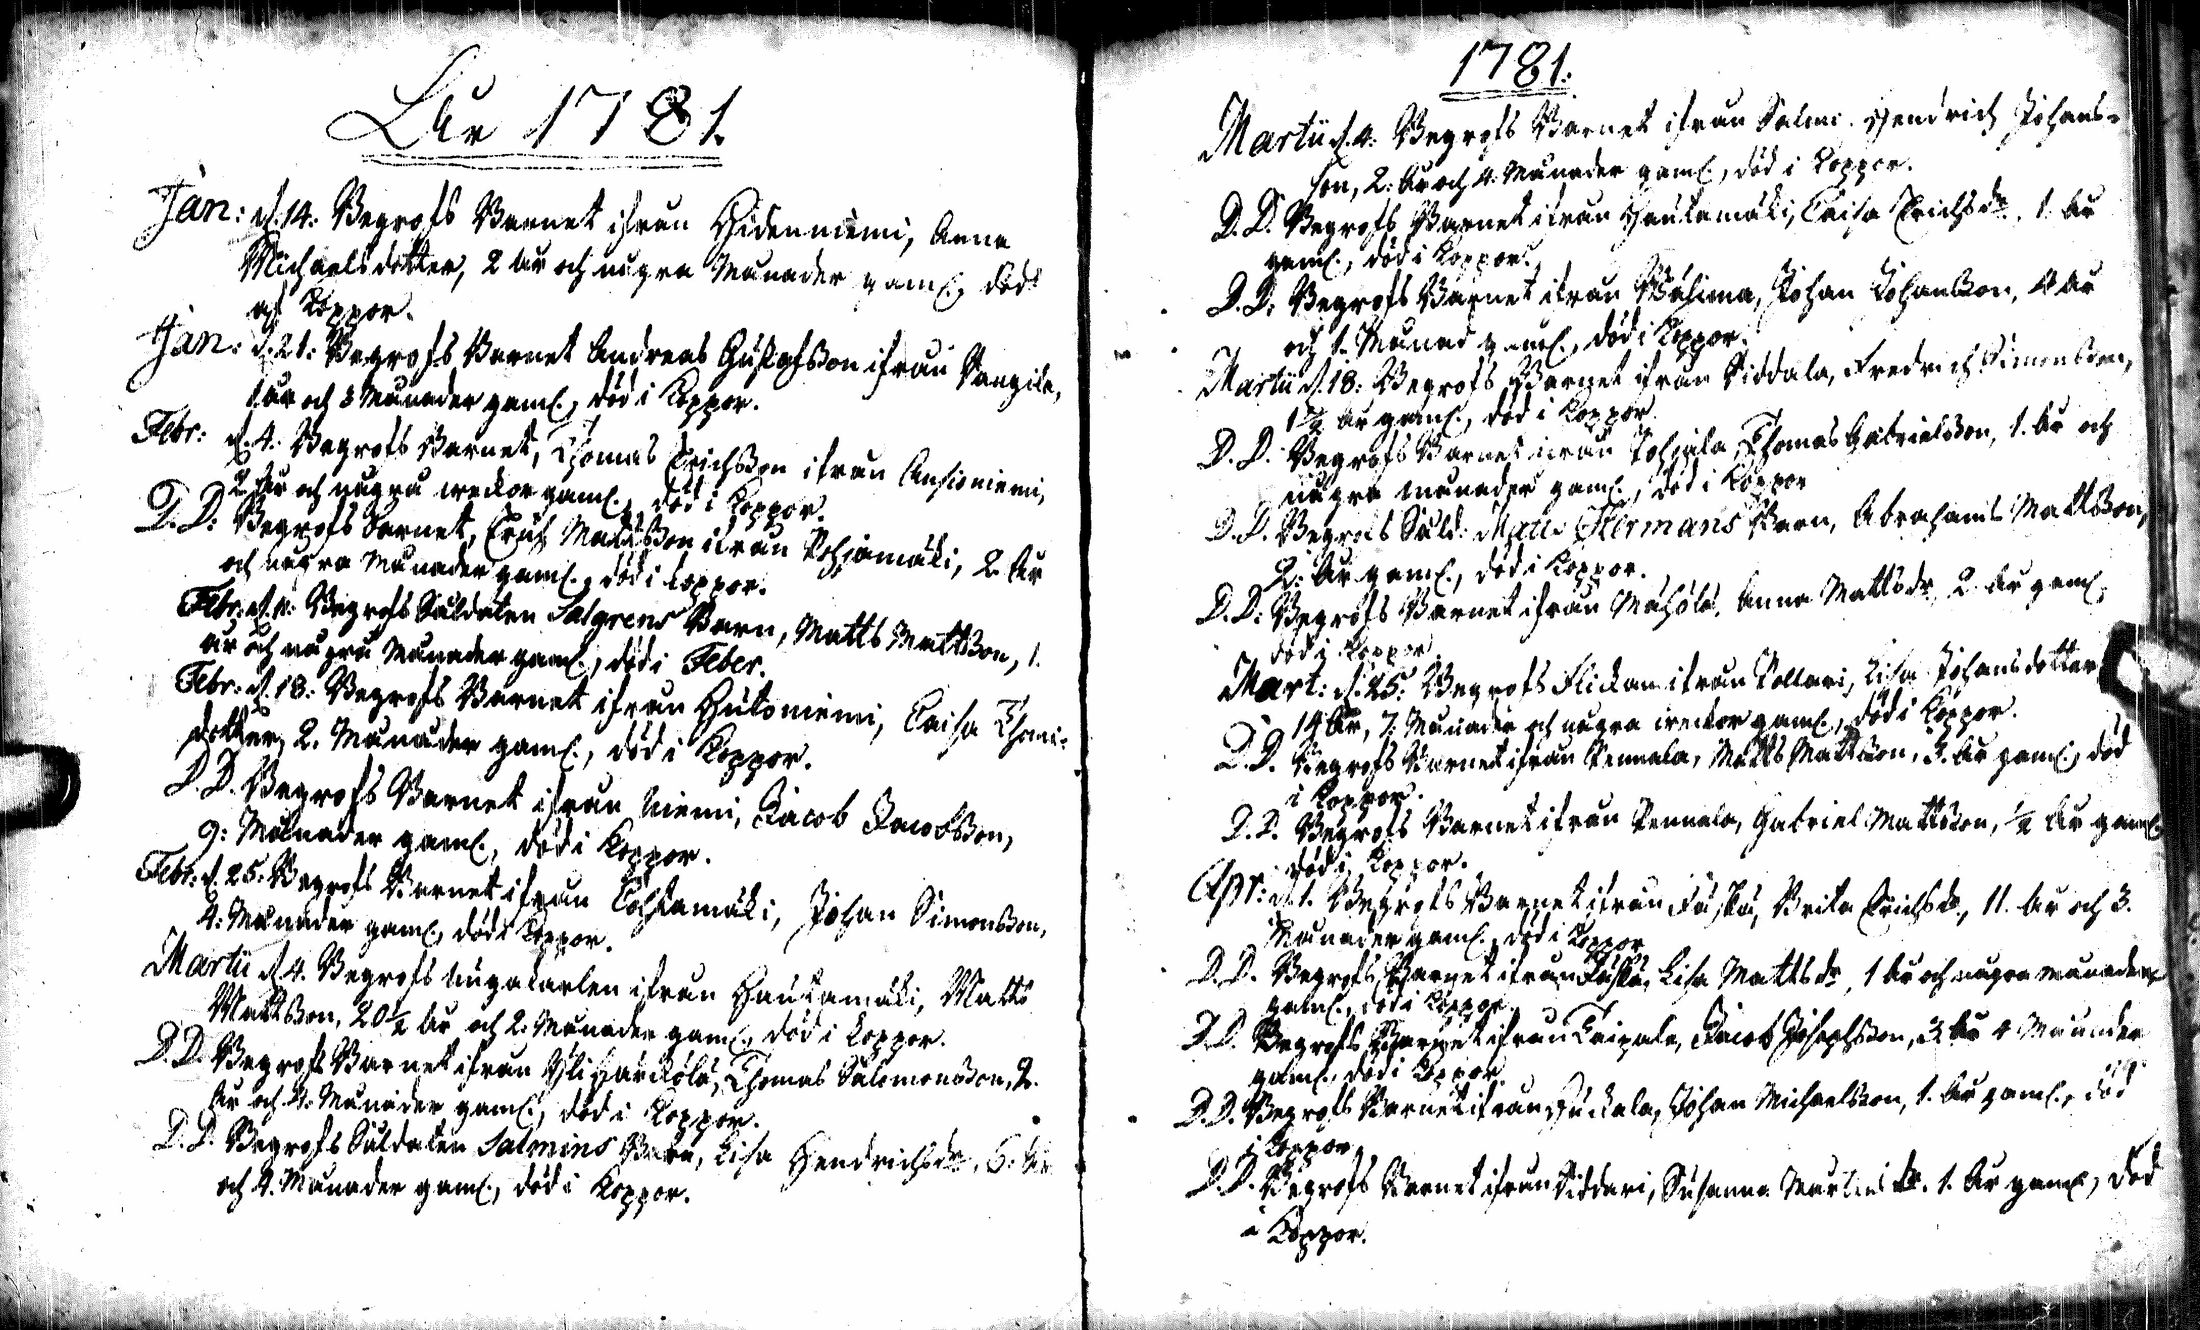 Åhr 1781.
Jan: d. 14. Begrofs Barnet ifrån Hidenniemi, Anna
Michaelsdotter, 2 år och några Månader gaml., död
af Koppor.
Jan: d. 21: Begrofs Barnet Andreas Gustafsson ifrån Pangila,
1 år och 3 Månader gaml., död i Koppor.
Febr: d. 4. Begrofs Barnet, Thomas Erichsson ifrån Ansioniemi,
2 år och några weckor gaml., död i Koppor.
D. D: Begrofs Barnet, Erich Mattsson ifrån Pohjamäki, 2 år
och några Månader gaml., död i koppor.
Febr: d. 11: Begrofs Såldaten Salgrens Barn, Matts Mattsson, 1.
år och några Månader gaml., död i Feber.
Febr: d. 18: Begrofs Barnet ifrån Hutoniemi, Caisa Thomæ-
dotter, 2. Månader gaml., död i Koppor.
D. D. Begrofs Barnet ifrån Niemi, Jacob Jacobsson,
9: Månader gaml., död i Koppor.
Febr: d. 25. Begrofs Barnet ifrån Tåhkamäki, Johan Simonsson,
4: Månader gaml., död i Koppor.
Martii d. 4. Begrofs Ungakarlen ifrån Hautamäki, Matts
Mattsson, 20 1/2 år och 2. Månader gaml., död i koppor.
D. D. Begrofs Barnet ifrån Ylihärsilä, Thomas Salomonsson, 2.
år och 4. Månader gaml., död i Koppor.
D. D. Begrofs Såldaten Salmins Barn, Lisa Hendrichsdr, 6. år
och 4. Månader gaml., död i Koppor.
1781.
Martii d. 4. Begrofs Barnet ifrån Salmi Hendrich Johans-
son, 2: år och 4. Månader gaml., död i Koppor.
D. D. Begrofs Barnet ifrån Hautamäki, Caisa Erichsdr. 1. år
gaml., död i Koppor.
D. D: Begrofs Barnet ifrån Johan Johansson, 4 år
och 1. Månad gaml., död i Koppor.
Martii d. 18: Begrofs Barnet ifrån Siddala, Fredrich Simonsson,
1 1/2 år gaml., död i Koppor.
D. D. Begrofs Barnet ifrån Pohjala, Thomas Gabrielsson, 1. år och
några månader gaml., död i Koppor
D. D. Begrofs Såld. Matts Hermans Barn, Abraham Mattsson,
2. år gaml., död i Koppor.
D. D: Begrofs Barnet ifrån Anna Mattsdr, 2. år gaml.,
död i Koppor.
Mart: d. 25: Begrofs Flickan ifrån Pollari, Lisa Johansdotter
14 år, 7. Månader och några weckor gaml., död i Koppor.
D. D. Begrofs Barnet ifrån Pennala, Matts Mattsson, 3. år gaml., död
i Koppor.
D. D. Begrofs Barnet ifrån Pennala, Gabriel Mattsson, 1/2 år gaml.
död i Koppor.
Apr: d. 1. Begrofs Barnet ifrån Brita Erichsdr, 11. år och 3.
Månader gaml., död i Koppor
D. D. Begrofs Barnet ifrån Lisa Mattsdr, 1 år och några månader
gaml., död i Koppor
D. D. Begrofs Barnet ifrån Taipale, Jacob Josephsson, 3 år 4 Månader
gaml., död i Koppor.
D. D. Begrofs Barnet ifrån Johan Michaelsson, 1. år gaml., död
i Koppor
D. D. Begrofs Barnet ifrån Siddari, Susanna Martinsdr. 1. år gaml., död
i Koppor.